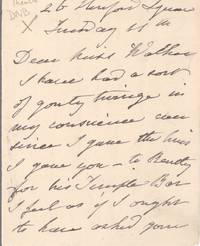 DNB
X
26 Hereford Square
Tuesday
Dear Miss Walker
I have had a sort
of gouty twinge in
my conscience ever
since I gave the line
I gave you – to Bentley
for his Temple Bar
I feel as if I ought
to have asked you